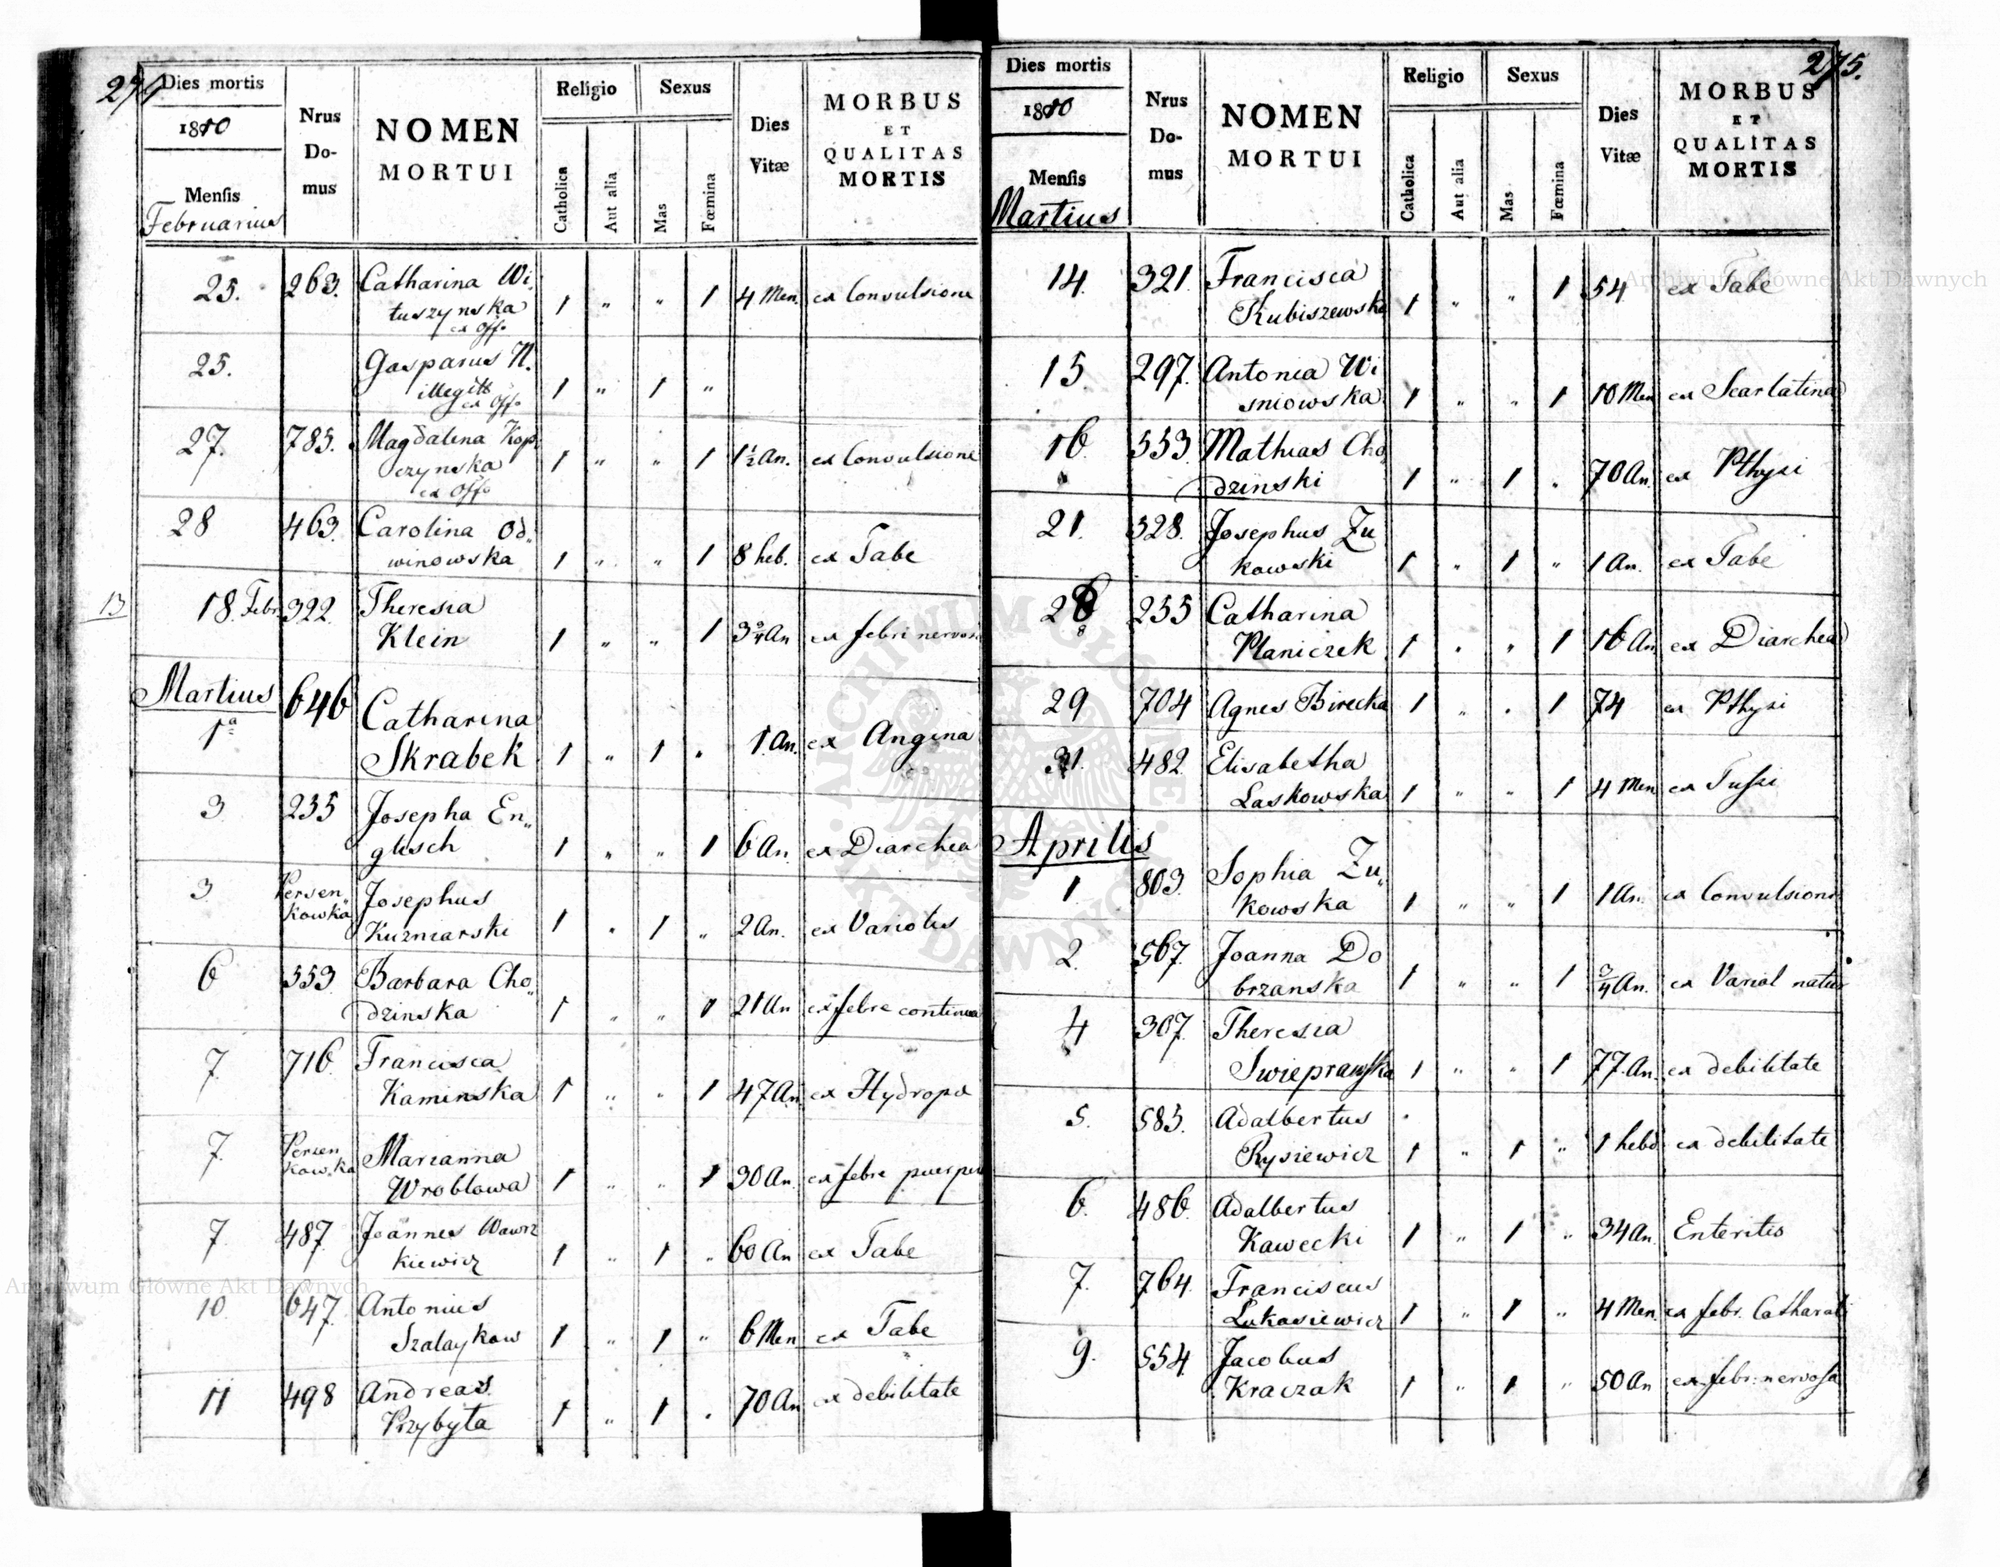 274
Dies mortis
1810
Mensis
Februarius
Nrus
Do-
mus
NOMEN
MORTUI
Religio
Catholica
Aut alia
Sexus
Mas
Fœmina
Dies
Vitæ
MORBUS
ET
QUALITAS
MORTIS
25. 263. Catharina Wi
tuszynska 1 „ „ 1 4 Men. ex Convulsione
ex Offo
25. Gasparus N.
illegitt 1 „ 1 „
ex Offo
27. 785. Magdalena Kop
czynska 1 „ „ 1 1½ An. ex Convulsione
ex Offo
28 463. Carolina Od„
winowska 1 „ „ 1 8 heb. ex Tabe
13 18. Febr. 322. Theresia
Klein 1 „ „ 1 3¾ An ex febri nervosa
Martius 646 Catharina
1a Skrabek 1 „ 1 „ 1 An. ex Angina
3 235 Josepha En„
glisch 1 „ „ 1 6 An. ex Diarchea
3 Persen„
kowka Josephus
Kuzniarski 1 „ 1 „ 2 An. ex Variolis
6 553 Barbara Cho„
dzinska 1 „ „ 1 21 An ex febre continua
7. 716 Francisca
Kaminska 1 „ „ 1 47 An. ex Hydrope
7. Persen
kowka Marianna
Wroblowa 1 „ „ 1 30 An. ex febre puerper
7. 487. Joannes Wawrz
kiewicz 1 „ 1 „ 60 An ex Tabe
10. 647. Antonius
Szalaykow 1 „ 1 „ 6 Men ex Tabe
11 498 Andreas
Przybyła 1 „ 1 „ 70 An ex debilitate
275.
Dies mortis
1810
Mensis
Martius
Nrus
Do-
mus
NOMEN
MORTUI
Religio
Catholica
Aut alia
Sexus
Mas
Fœmina
Dies
Vitæ
MORBUS
ET
QUALITAS
MORTIS
14. 321. Francisca
Kubiszewska 1 „ „ 1 54 ex Tabe
15. 297. Antonia Wi
sniowska 1 „ „ 1 10 Men ex Scarlatina
16. 553. Mathias Cho„
dzinski 1 „ 1 „ 70 An. ex Pthysi
21. 328. Josephus Zu
kowski 1 „ 1 „ 1 An. ex Tabe
28 255 Catharina
8 Planiczek 1 „ „ 1 16 An. ex Diarchea
29 704 Agnes Birecka 1 „ „ 1 74 ex Pthysi
31. 482. Elisabetha
Laskowska 1 „ „ 1 4 Men ex Tussi
Aprilis
1. 803. Sophia Zu„
kowska 1 „ „ 1 1 An. ex Convulsione
2. 567. Joanna Do
brzanska 1 „ „ 1 ¾ An. ex Variol natur
4 307. Theresia
Swieprawska 1 „ „ 1 77 An. ex debilitate
5. 583. Adalbertus
Rysiewicz 1 „ 1 „ 1 hebd ex debilitate
6. 486. Adalbertus
Kawecki 1 „ 1 „ 34 An. Enteritis
7. 764. Franciscus
Lukasiewicz 1 „ 1 „ 4 Men. ex febr. Catharali
9. 554. Jacobus
Kraczak 1 „ 1 „ 50 An ex febr: nervosa
Archiwum Główne Akt Dawnych
Archiwum Główne Akt Dawnych
ARCHIWUM GŁÓWNE
AKT DAWNYCH